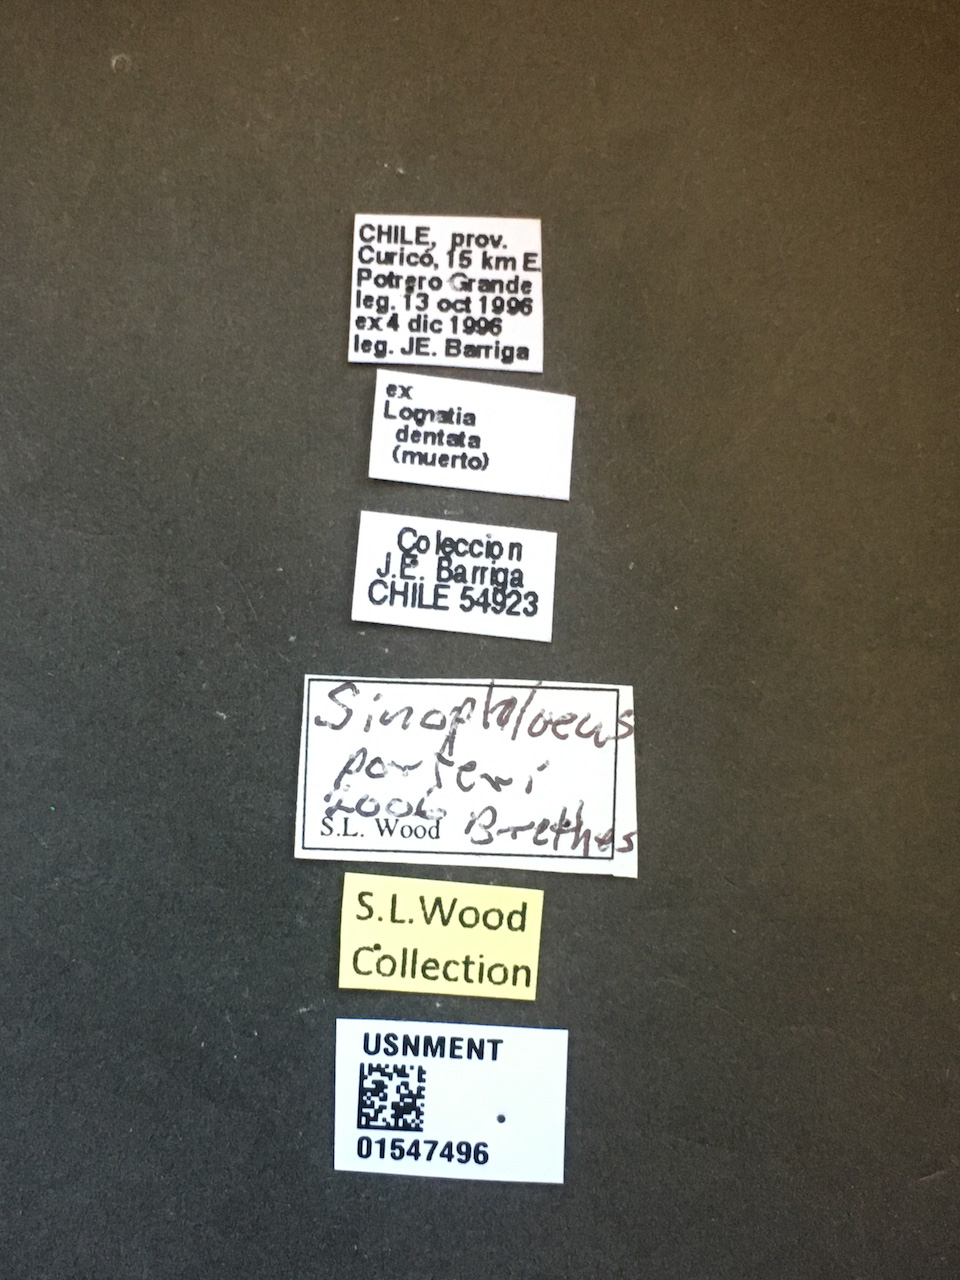 CHILE, prov.
Curicó, 15 km E.
Potrero Grande
leg. 13 oct 1996
ex 4 dic 1996
leg. JE. Barriga
ex
Lomatia
dentata
(muerto)
Coleccion
J.E. Barriga
CHILE 54923
Sinophloeus
porteri
2006 Brethes
S.L. Wood
S.L.Wood
Collection
USNMENT
01547496